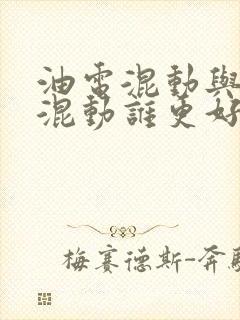 油電混動與
混動誰更好
梅賽德斯-奔